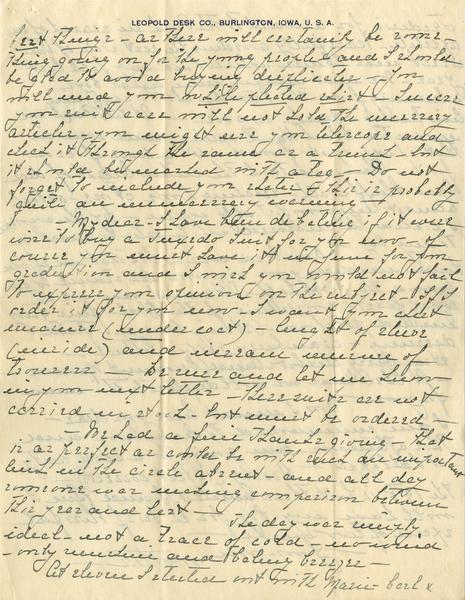 LEOPOLD DESK CO., BURLINGTON, IOWA, U. S. A.
best things - as there will certainly be some-
thing going on for the young people and I should
be glad to avoid buying duplicates - You
will need your white pleated shirt - In case
your suit case will not hold the necessary
articles - you might use your telescope and
check it through the same as a trunk - but
it should be marked with a tag - Do not
forget to include your skates - this is probably
quite an unnecessary warning -
- My dear - I have been debating if it were
wise to buy a Tuxedo Suit for you now - of
course you must have it in June for your
graduation and I wish you would not fail
to express your opinion on the subject - If I
order it for you now - I want your chest
measure (under coat) - length of sleeve
(inside) and inseam measure of
trousers - Be sure and let me know
in your next letter - These suits are not
carried in stock - but must be ordered -
- We had a fine Thanksgiving - that
is as perfect as could be with such an important
link in the circle absent - and all day
someone was making comparison between
this year and last -
The day was simply
ideal - not a trace of cold - no wind
- only sunshine and balmy breezes -
At eleven I started out with Marie Carl &